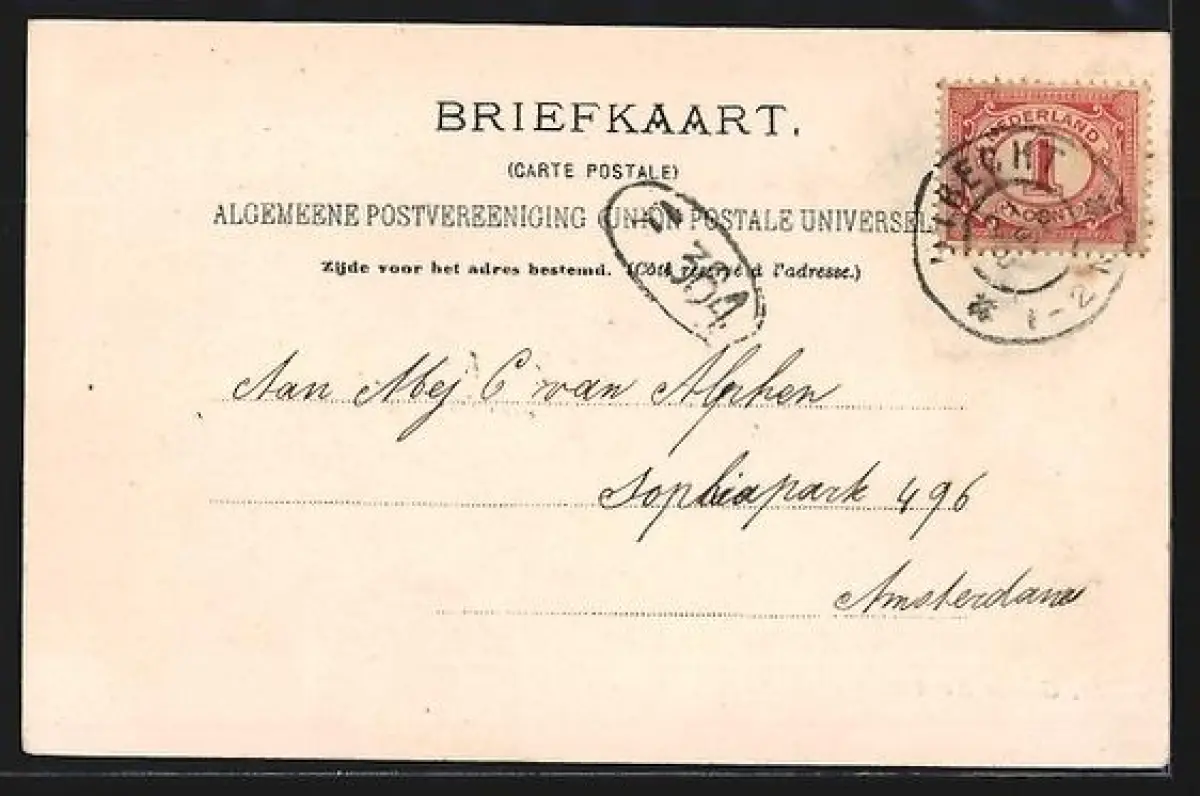 BRIEFKAART.
(CARTE POSTALE)
ALGEMEENE POSTVEREENIGING (UNION POSTALE UNIVERSEL
Zijde voor het adres bestemd. (Côté réservé à l'adresse.)
NEDERLAND
1
CENT
1-2
364
Aan Mej C van Alphen
Sophiapark 496
Amsterdam